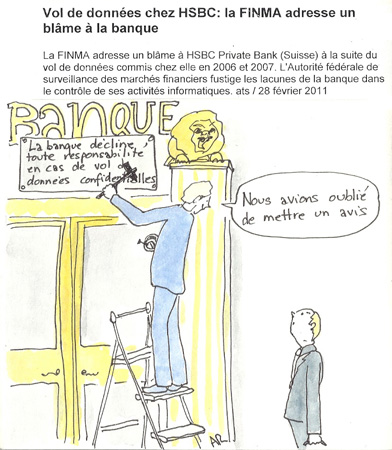 Vol de données chez HSBC: la FINMA adresse un
blâme à la banque
La FINMA adresse un blâme à HSBC Private Bank (Suisse) à la suite du
vol de données commis chez elle en 2006 et 2007. L'Autorité fédérale de
surveillance des marchés financiers fustige les lacunes de la banque dans
le contrôle de ses activités informatiques. ats / 28 février 2011
BANQUE
La banque décline
toute responsabilité
en cas de vol de
données confidentielles
Nous avions oublié
de mettre un avis